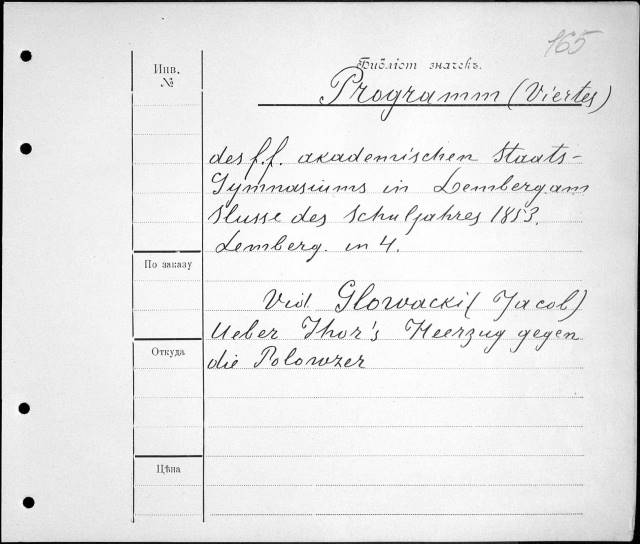 165
Инв.
№
Библіот. значекъ.
Programm (Viertes)
des f. f. akademischen Staats-
Gymnasiums in Lemberg am
Slusse des Schuljahres 1853.
Lemberg. in 4.
По заказу
Vid. Glowacki (Jacob)
Ueber Ihor's Heerzug gegen
Откуда
die Polowzer
Цѣна